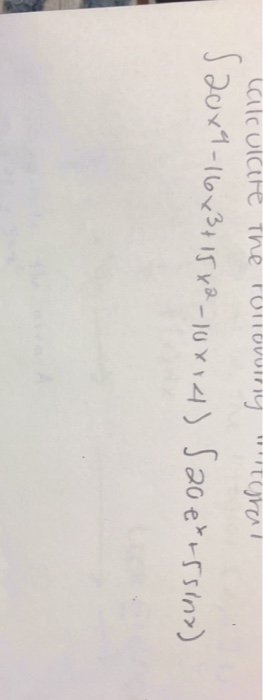 calculate the following integral
∫20x⁴-16x³+15x²-10x+4) ∫20eˣ+5sinx)